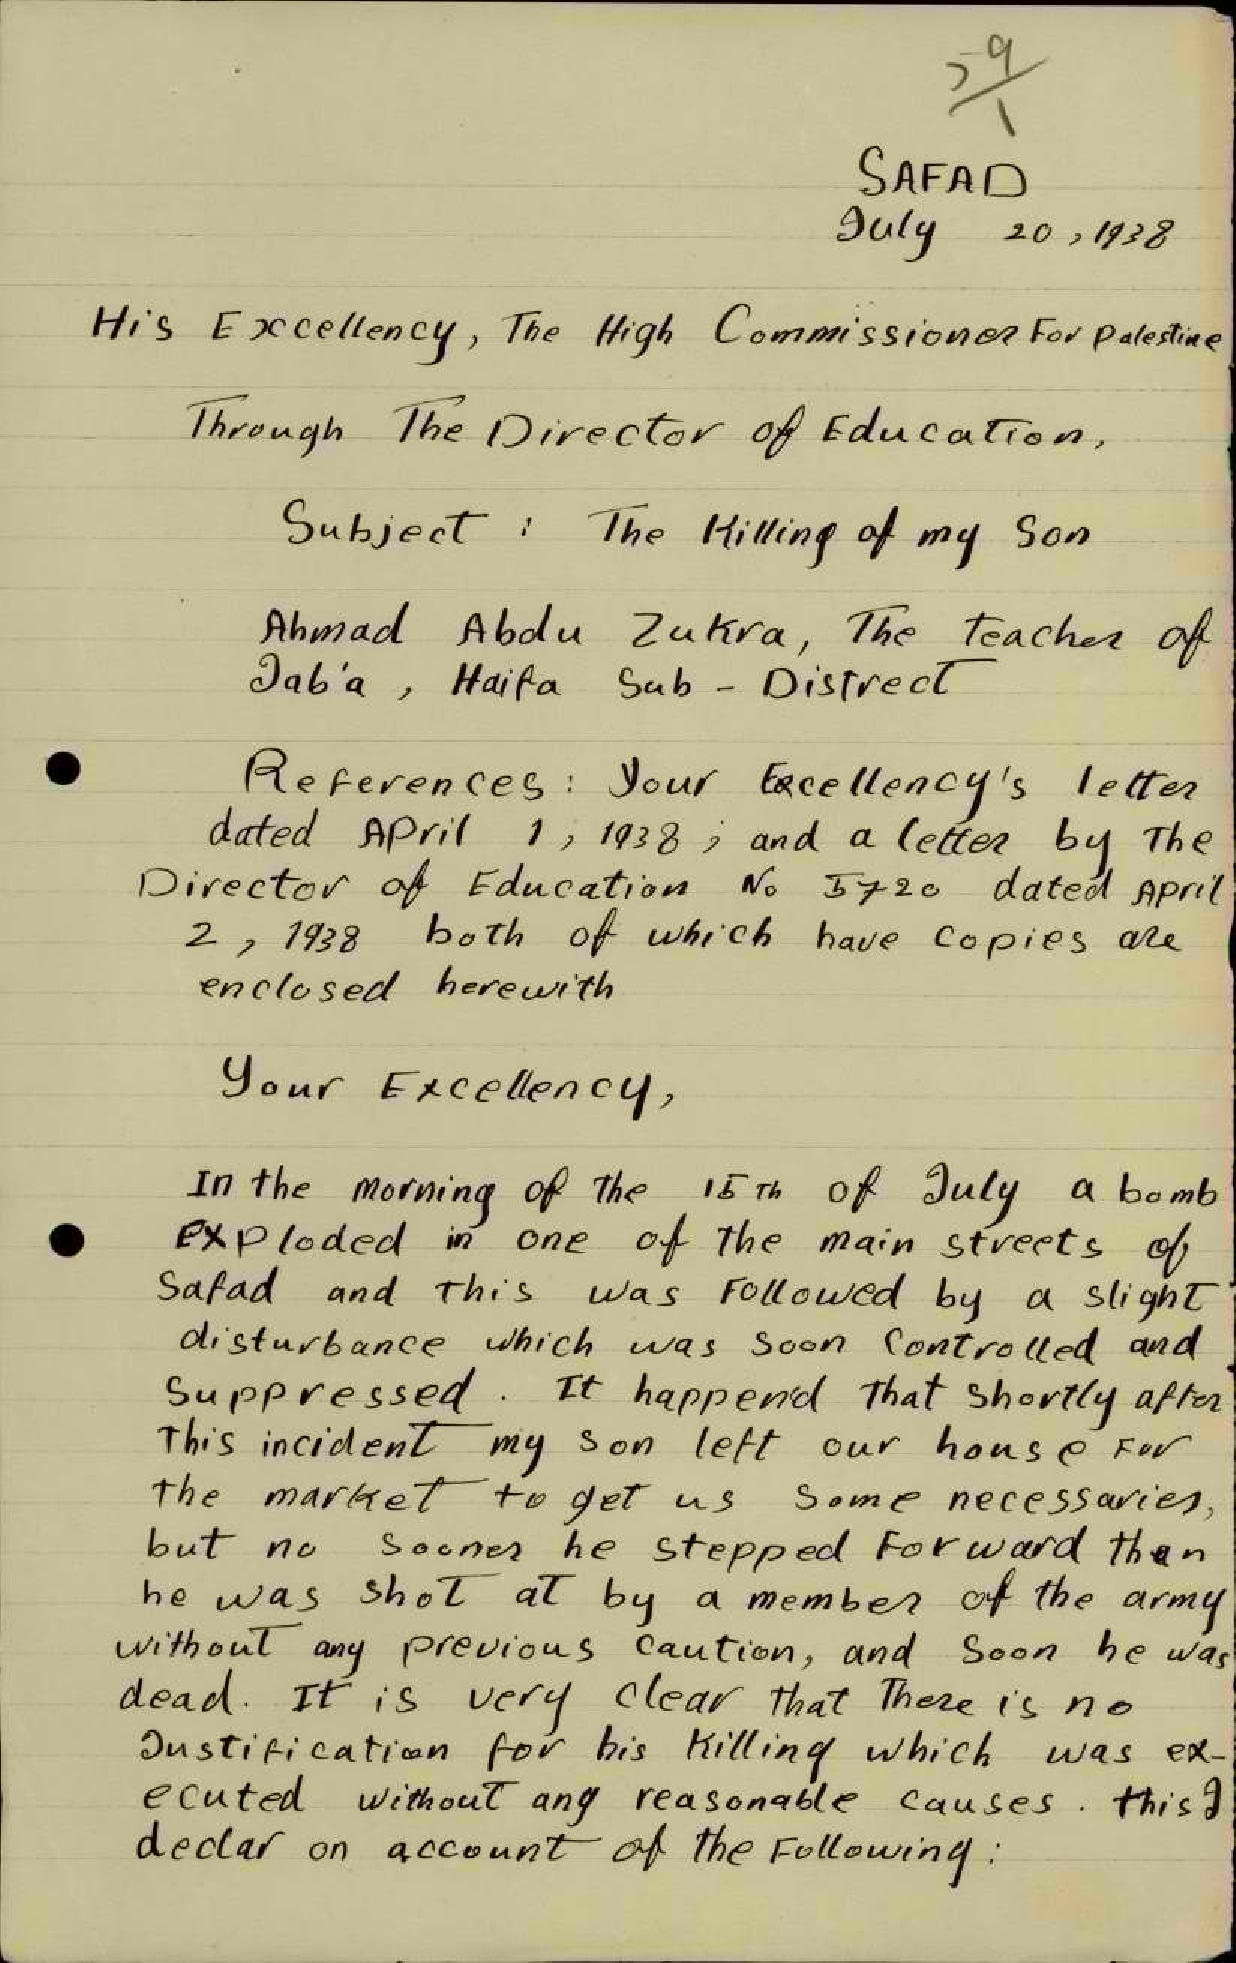 59/1
SAFAD
July 20, 1938
His Excellency, The High Commissioner For Palestine
Through The Director of Education,
Subject : The Killing of my Son
Ahmad Abdu Zukra, The teacher of
Jab'a, Haifa Sub-Distrect
References: Your Excellency's letter
dated April 1, 1938; and a letter by The
Director of Education No 5720 dated April
2, 1938 both of which have copies are
enclosed herewith
Your Excellency,
In the morning of the 15Th of July a bomb
exploded in one of the main streets of
Safad and this was followed by a slight
disturbance which was soon controlled and
suppressed. It happen'd that shortly after
this incident my son left our house for
the market to get us some necessaries,
but no sooner he stepped forward than
he was shot at by a member of the army
without any previous caution, and soon he was
dead. It is very clear that There is no
Justification for his killing which was ex-
ecuted without any reasonable causes. this I
declar on account of the Following: